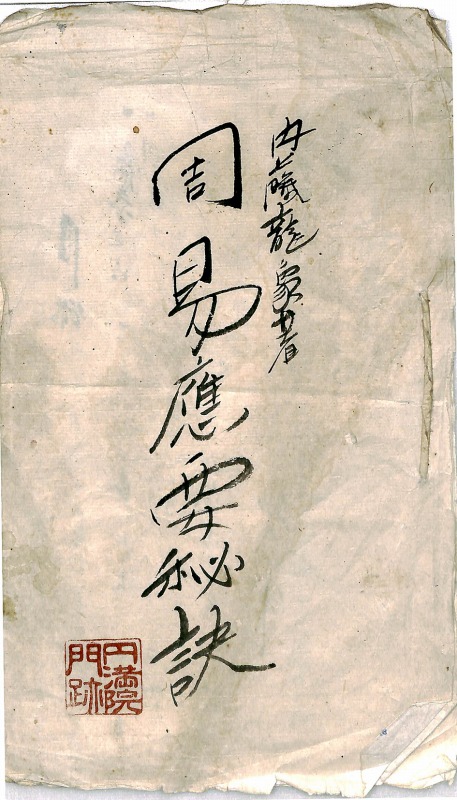 内藤龍象著
周易應要秘訣
円満院
門跡